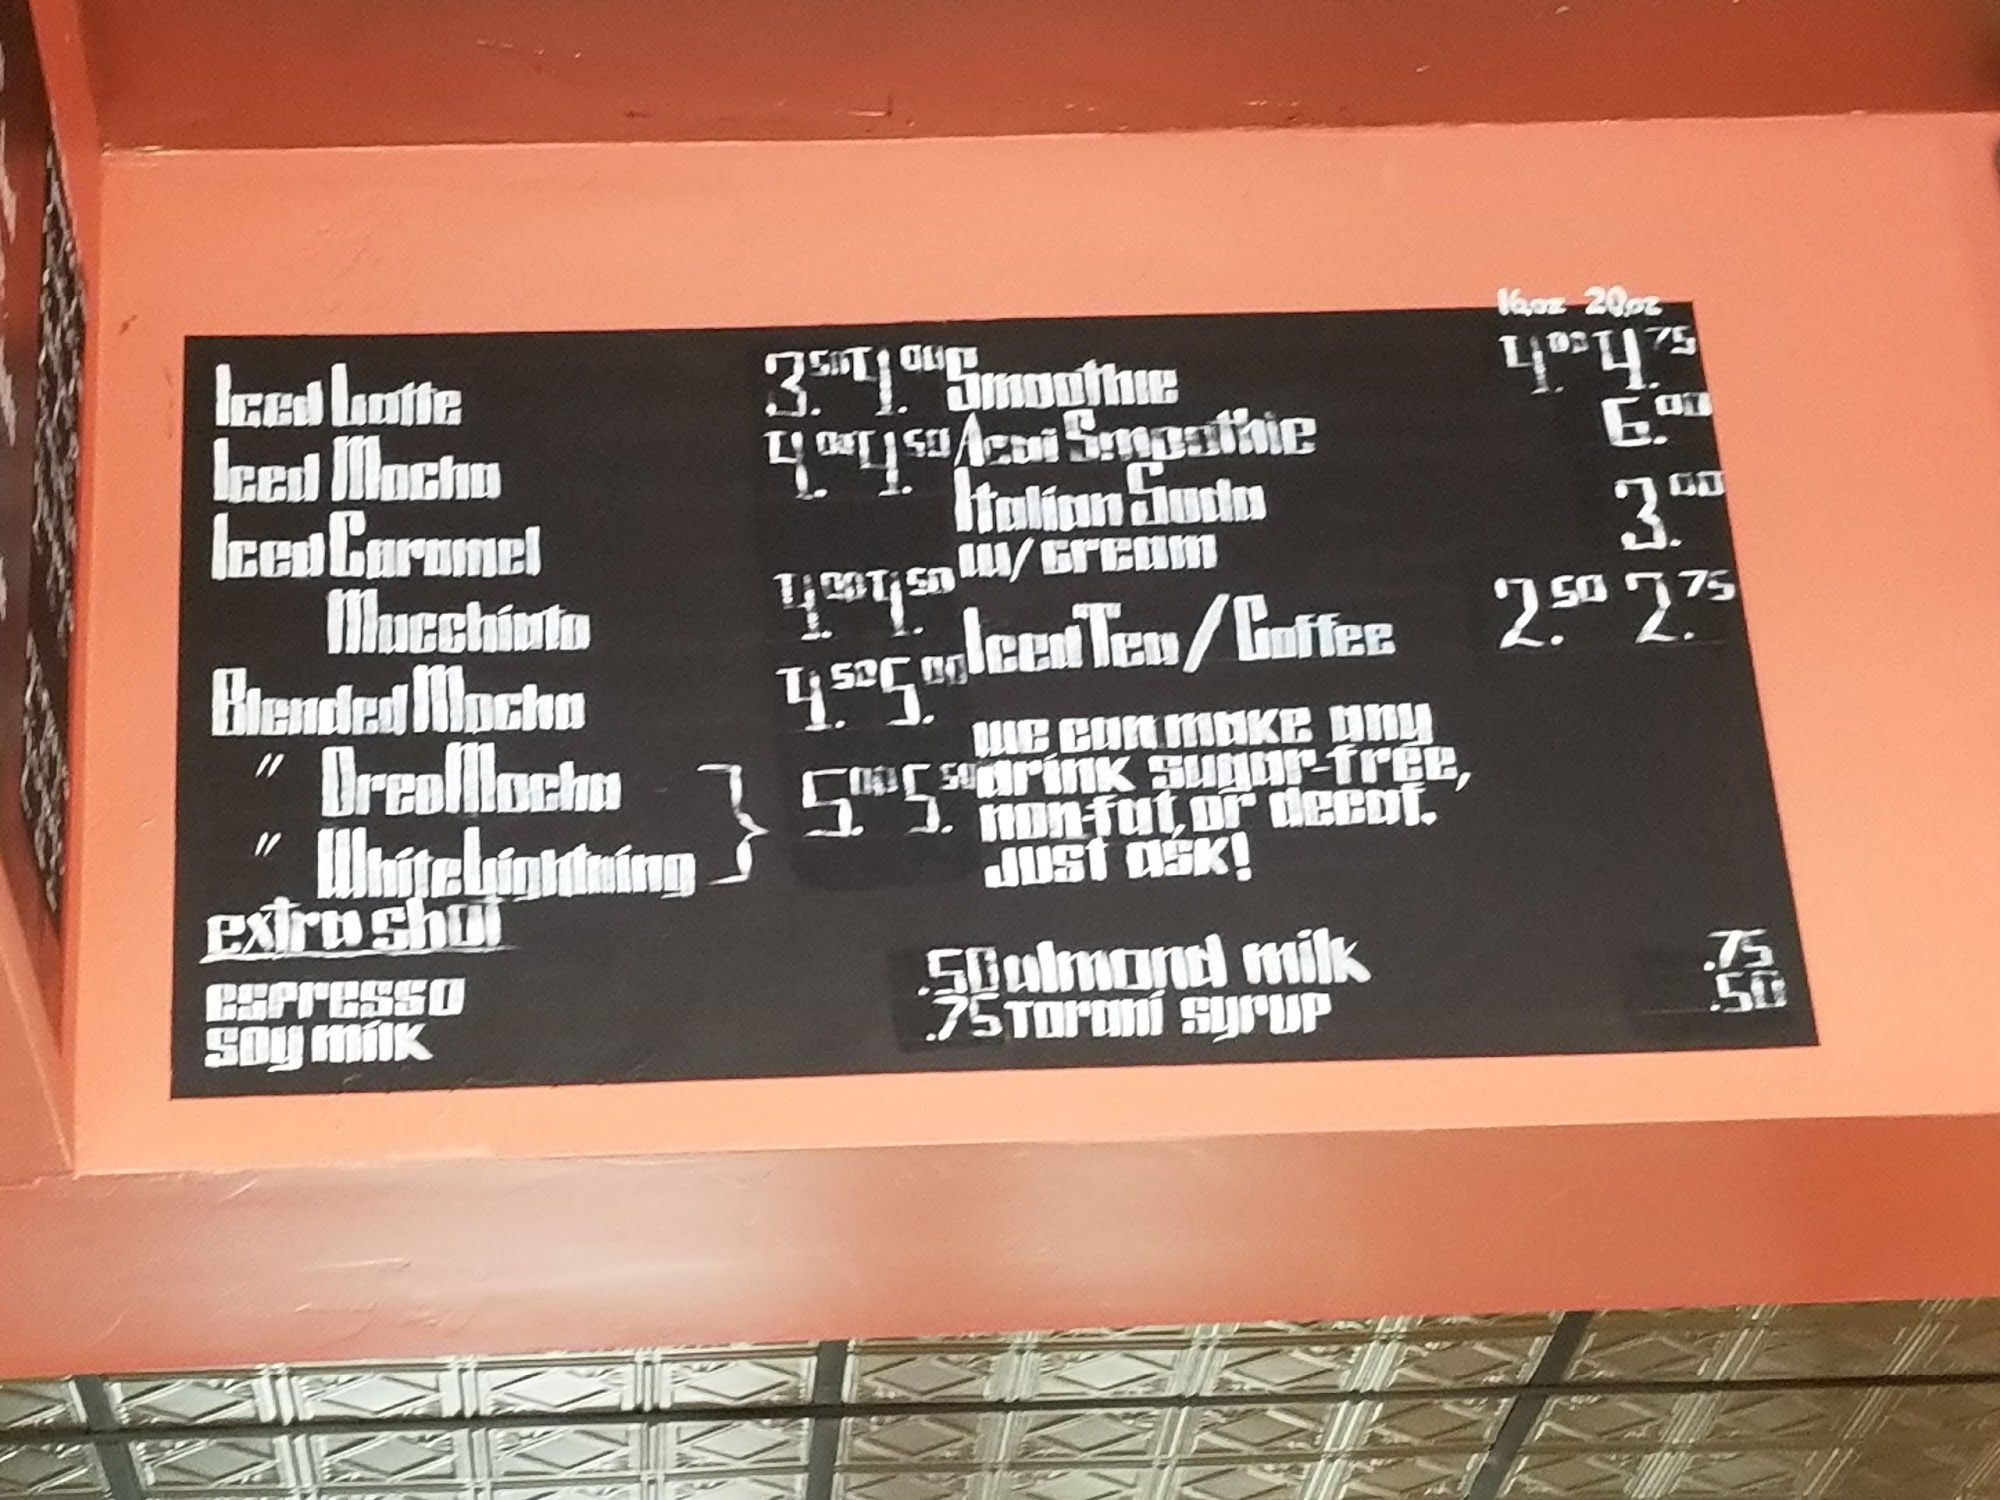 Iced Latte 3.50 4.00
Iced Mocha 4.00 4.50
Iced Caramel
Macchiato 4.00 4.50
Blended Mocha 4.50 5.00
" Oreo Mocha
" White Lightning } 5.00 5.50
extra shot
espresso .50
soy milk .75
16oz 20oz
Smoothie 4.00 4.75
Acai Smoothie 6.00
Italian Soda
w/ cream 3.00
Iced Tea / Coffee 2.50 2.75
we can make any
drink sugar-free,
non-fat, or decaf.
Just ask!
almond milk .75
Torani syrup .50